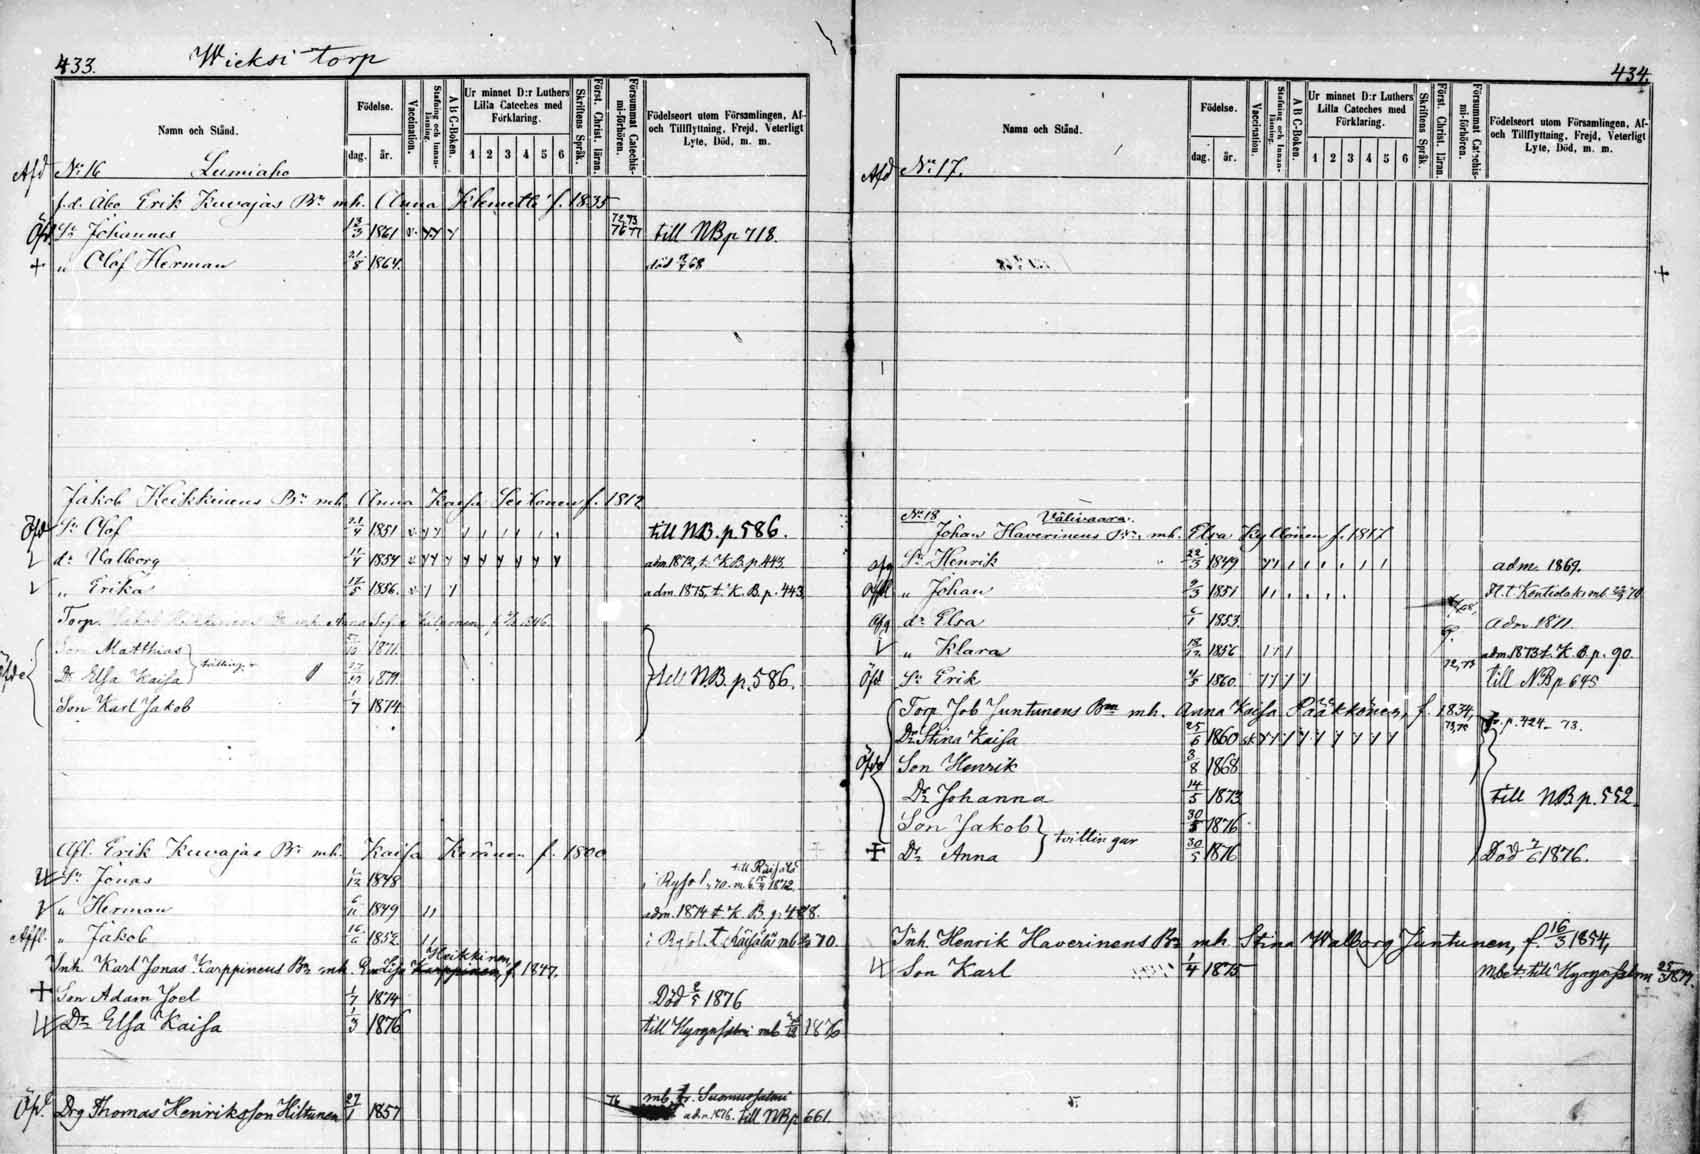 433. Wieksi torp
Namn och Stånd.
Födelse.
dag. år.
Vaccination.
Stafning och Innan-läsning.
A B C-Boken.
Ur minnet D:r Luthers Lilla Cateches med Förklaring.
1 2 3 4 5 6
Skriftens Språk.
Först. Christ. läran.
Försummat Catechis-mi-förhören.
Födelseort utom Församlingen, Af- och Tillflyttning, Frejd, Veterligt Lyte, Död, m. m.
Afd No 16 Lumiaho
f.d. Åbo Erik Kuvajas Bn mh. Anna Klemetti f. 1835
Öfd Sn Johannes 13/3 1861 72 73 76 77 till NB p 718.
+ " Olof Herman 21/8 1864. död 68
Jakob Heikkinens Bn mh. Anna Kaisa Seilonen f. 1812
Öfd Sn Olof 21/4 1851 till NB. p. 586.
dr Valborg 11/4 1854 adm 1873, t. K B p. 443
" Erika 12/5 1856. adm. 1875, t. K. B. p. 443
Torp. Jakob Heikkinens Bn mh Anna Sofia
Son Matthias 1871.
Dr Elsa Kaisa tvillingar 1871
till NB. p. 586.
Son Karl Jakob 1/7 1874
Afl. Erik Kuvajas Bn mh. Kaisa Keränen f. 1800
Sn Jonas 1/12 1848
" Herman 6/11 1849 adm. 1874 t. K. B. p. 488.
Affl. " Jakob 16/6 1852 70.
Inh. Karl Jonas Karppinens Bn mh. Heikkinen, f. 1847.
+ Son Adam Joel 1/7 1874 Död 2/5 1876
Dr Elsa Kaisa 1/3 1876 till Hyrynsalmi mb 1876
Öfd Drg Thomas Henriksson Hiltunen 27/1 1857 76 mb. fr. Suomussalmi
adm. 1876. till NB p 661.
434.
Namn och Stånd.
Födelse.
dag. år.
Vaccination.
Stafning och Innan-läsning.
A B C-Boken.
Ur minnet D:r Luthers Lilla Cateches med Förklaring.
1 2 3 4 5 6
Skriftens Språk.
Först. Christ. läran.
Försummat Catechis-mi-förhören.
Födelseort utom Församlingen, Af- och Tillflyttning, Frejd, Veterligt Lyte, Död, m. m.
Afd No 17.
No 18 Välivaara.
Johan Haverinens Bn mh. Elsa Kyllönen f. 1817
Sn Henrik 22/3 1849 adm. 1869.
" Johan 9/3 1851
dr Elsa 6/1 1853. adm. 1871.
" Klara 18/12 1856 adm. 1873 t. K. B. p. 90.
Öfd Sn Erik 4/5 1860 72, 73 till NB p 645
Torp. Job Juntunens Bn mh. Anna Kaisa Pääkkönen, f. 1834, fr. p. 424 - 73.
Dr Stina Kaisa 25/6 1860
Son Henrik 3/8 1868
Dr Johanna 14/5 1873 till NB p. 552.
Son Jakob 30/5 1876
tvillingar
+ Dr Anna 30/5 1876 Död 7/6 1876.
Inh. Henrik Haverinens Bn mh. Stina Walborg Juntunen, f. 16/3 1854,
Son Karl 1/4 1875 mbet till Hyrynsalmi 25/3 1877.